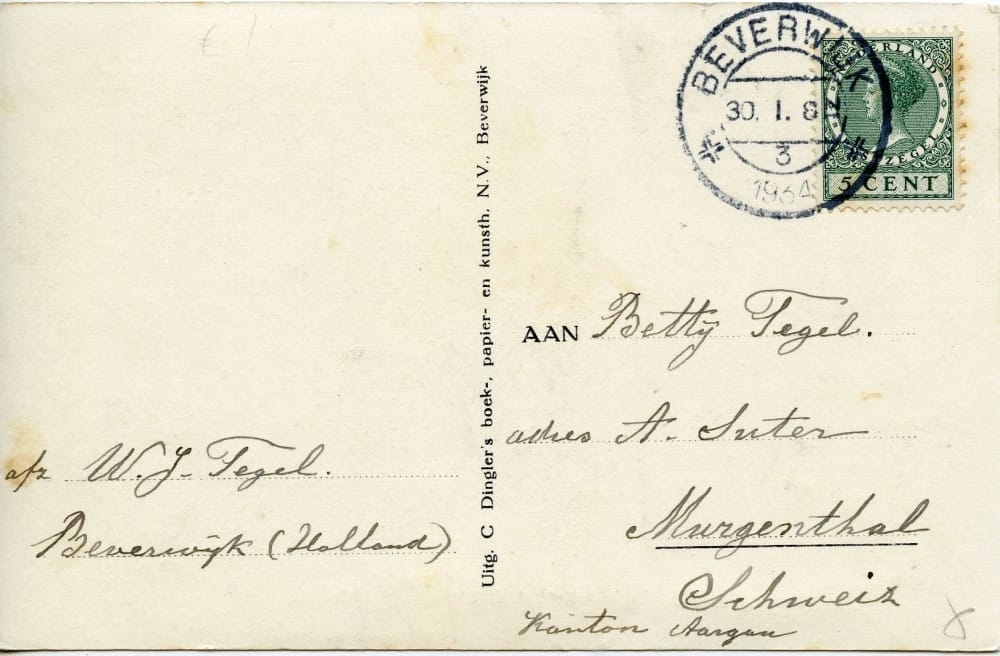 BEVERWIJK
30. 1. 8
3
1934
NEDERLAND
POSTZEGEL
5 CENT
Uitg. C Dingler's boek-, papier- en kunsth. N.V., Beverwijk
AAN Betty Tegel.
adres A. Suter
Murgenthal
Schweiz
Kanton Aargau
afz W. J. Tegel.
Beverwijk (Holland)